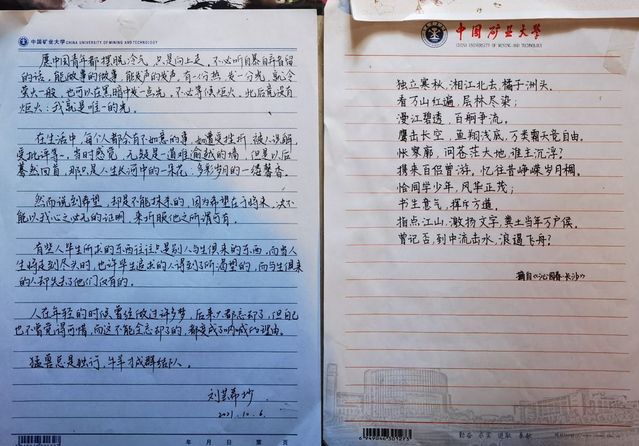 中国矿业大学 CHINA UNIVERSITY OF MINING AND TECHNOLOGY
愿中国青年都摆脱冷气，只是向上走，不必听自暴自弃者流
的话，能做事的做事，能发声的发声，有一份热，发一分光，就令
萤火一般，也可以在黑暗中发一点光，不必等候炬火，此后竟没有
炬火：我就是唯一的光。
在生活中，每个人都会有不如意的事，如遭受挫折，被人误解，
受批评等，当时感觉，无疑是一道难逾越的墙，但是以后
蓦然回首，那只是人生长河中的一朵花，多彩岁月的一缕馨香。
然而说到希望，却是不能抹杀的，因为希望在于将来，决不
能以我心之必无的证明，来折服他之所谓可有。
有些人毕生所求的东西往往只是别人与生俱来的东西，而当人
生将走到尽头时，也许毕生追求的人得到了所渴望的，而与生俱来
的人却失去了他们仅有的。
人在年轻的时候曾经做过许多梦，后来大都忘却了，但自己
也不曾觉得可惜，而这不能全忘却了的，都变成了呐喊的理由。
猛兽总是独行，牛羊才成群结队。
刘
抄
2021.10.6.
年 月 日 第 页
中国矿业大学
CHINA UNIVERSITY OF MINING AND TECHNOLOGY
独立寒秋，湘江北去，橘子洲头。
看万山红遍，层林尽染；
漫江碧透，百舸争流。
鹰击长空，鱼翔浅底，万类霜天竞自由。
怅寥廓，问苍茫大地，谁主沉浮？
携来百侣曾游，忆往昔峥嵘岁月稠。
恰同学少年，风华正茂；
书生意气，挥斥方遒。
指点江山，激扬文字，粪土当年万户侯。
曾记否，到中流击水，浪遏飞舟？
摘自《沁园春·长沙》
勤奋 求实 进取 奉献